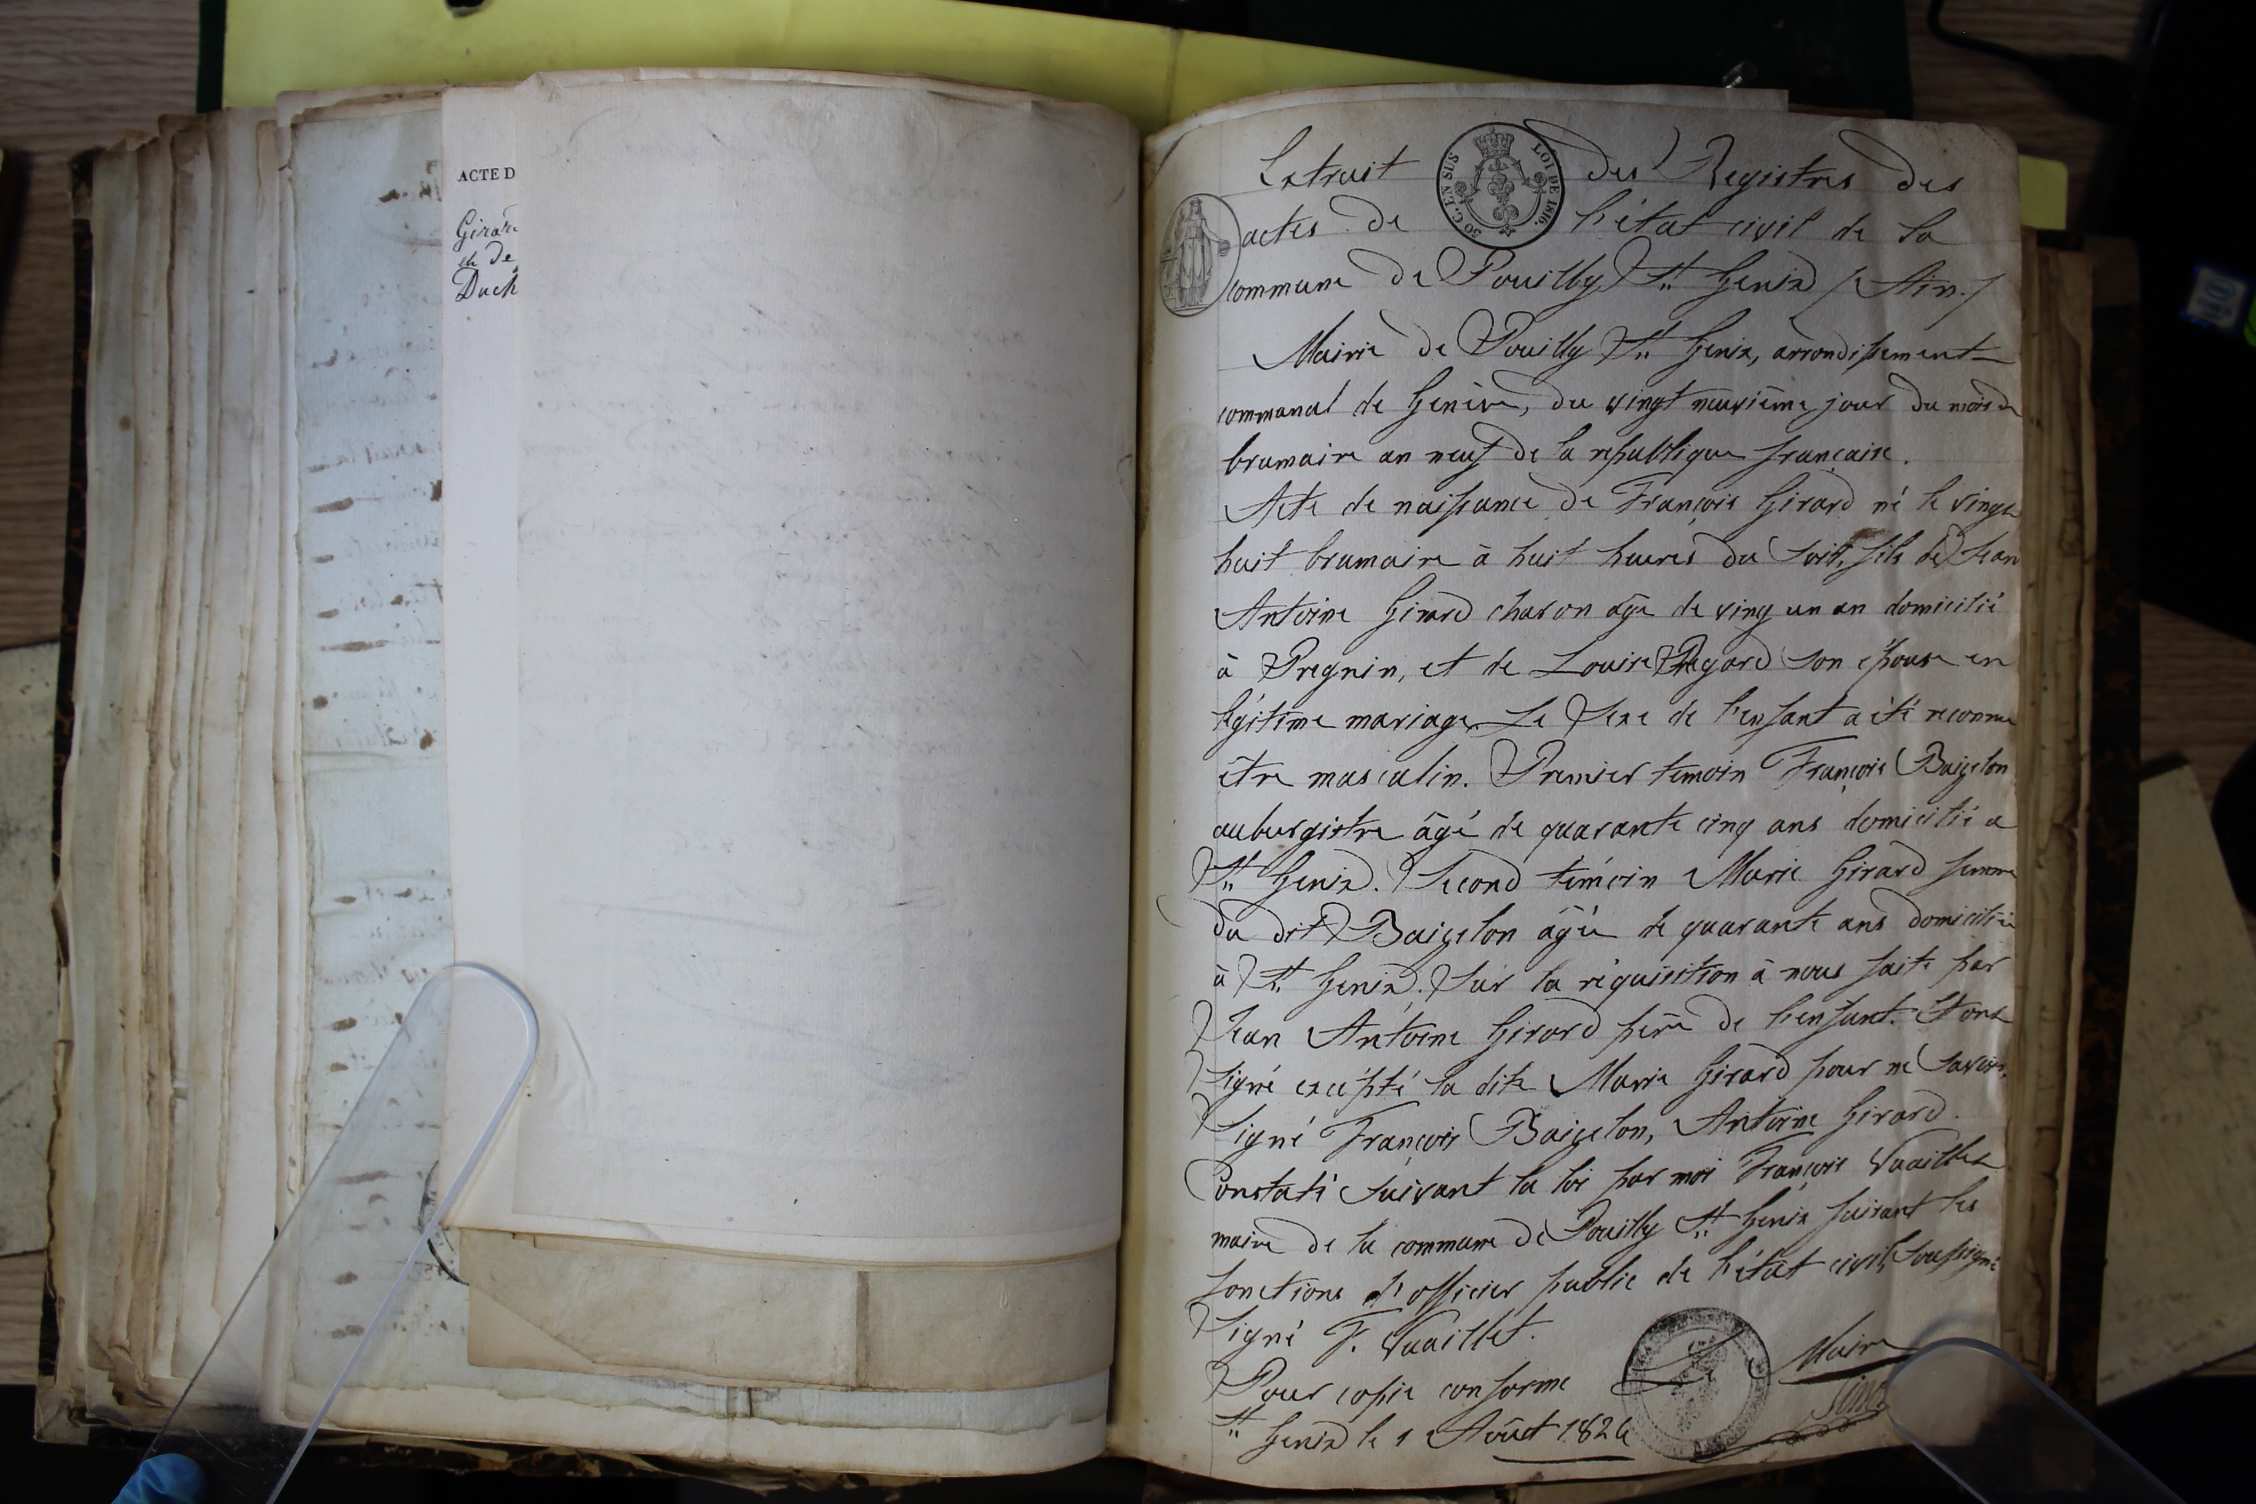 ACTE D
Girar
et de
Duch
Extrait des Registres des
30 C. EN SUS LOI DE 1816.
actes de l'état civil de la
commune de Pouilly St. Genix (Ain.)
Mairie de Pouilly St. Genix, arrondissement
communal de Genève, du vingt neuvième jour du mois de
brumaire an neuf de la republique française.
Acte de naissance de François Girard né le vingt
huit brumaire à huit heures du soir, fils de Jean
Antoine Girard charon âgé de ving un an domicilié
à Pregnin, et de Louise Regard son épouse en
légitime mariage. Le Sexe de l'enfant a été reconnu
être masculin. Premier temoin François Baigelon
aubergistre âgé de quarante cinq ans domicilié a
St. Genix. Second témoin Marie Girard femme
du dit Baigelon âgée de quarante ans domiciliée
à St. Genix. Sur la réquisition à nous faite par
Jean Antoine Girard père de l'enfant. Et ont
Signé excépté la dite Marie Girard pour ne savoir.
Signé François Baigelon, Antoine Girard.
Constaté suivant la loi par moi François Vuaillet
maire de la commune de Pouilly St. Genix faisant les
fonctions d'officier public de l'état civil, soussigné
Signé F. Vuaillet.
Pour copie conforme Le Maire
St. Genix le 1 Août 1824